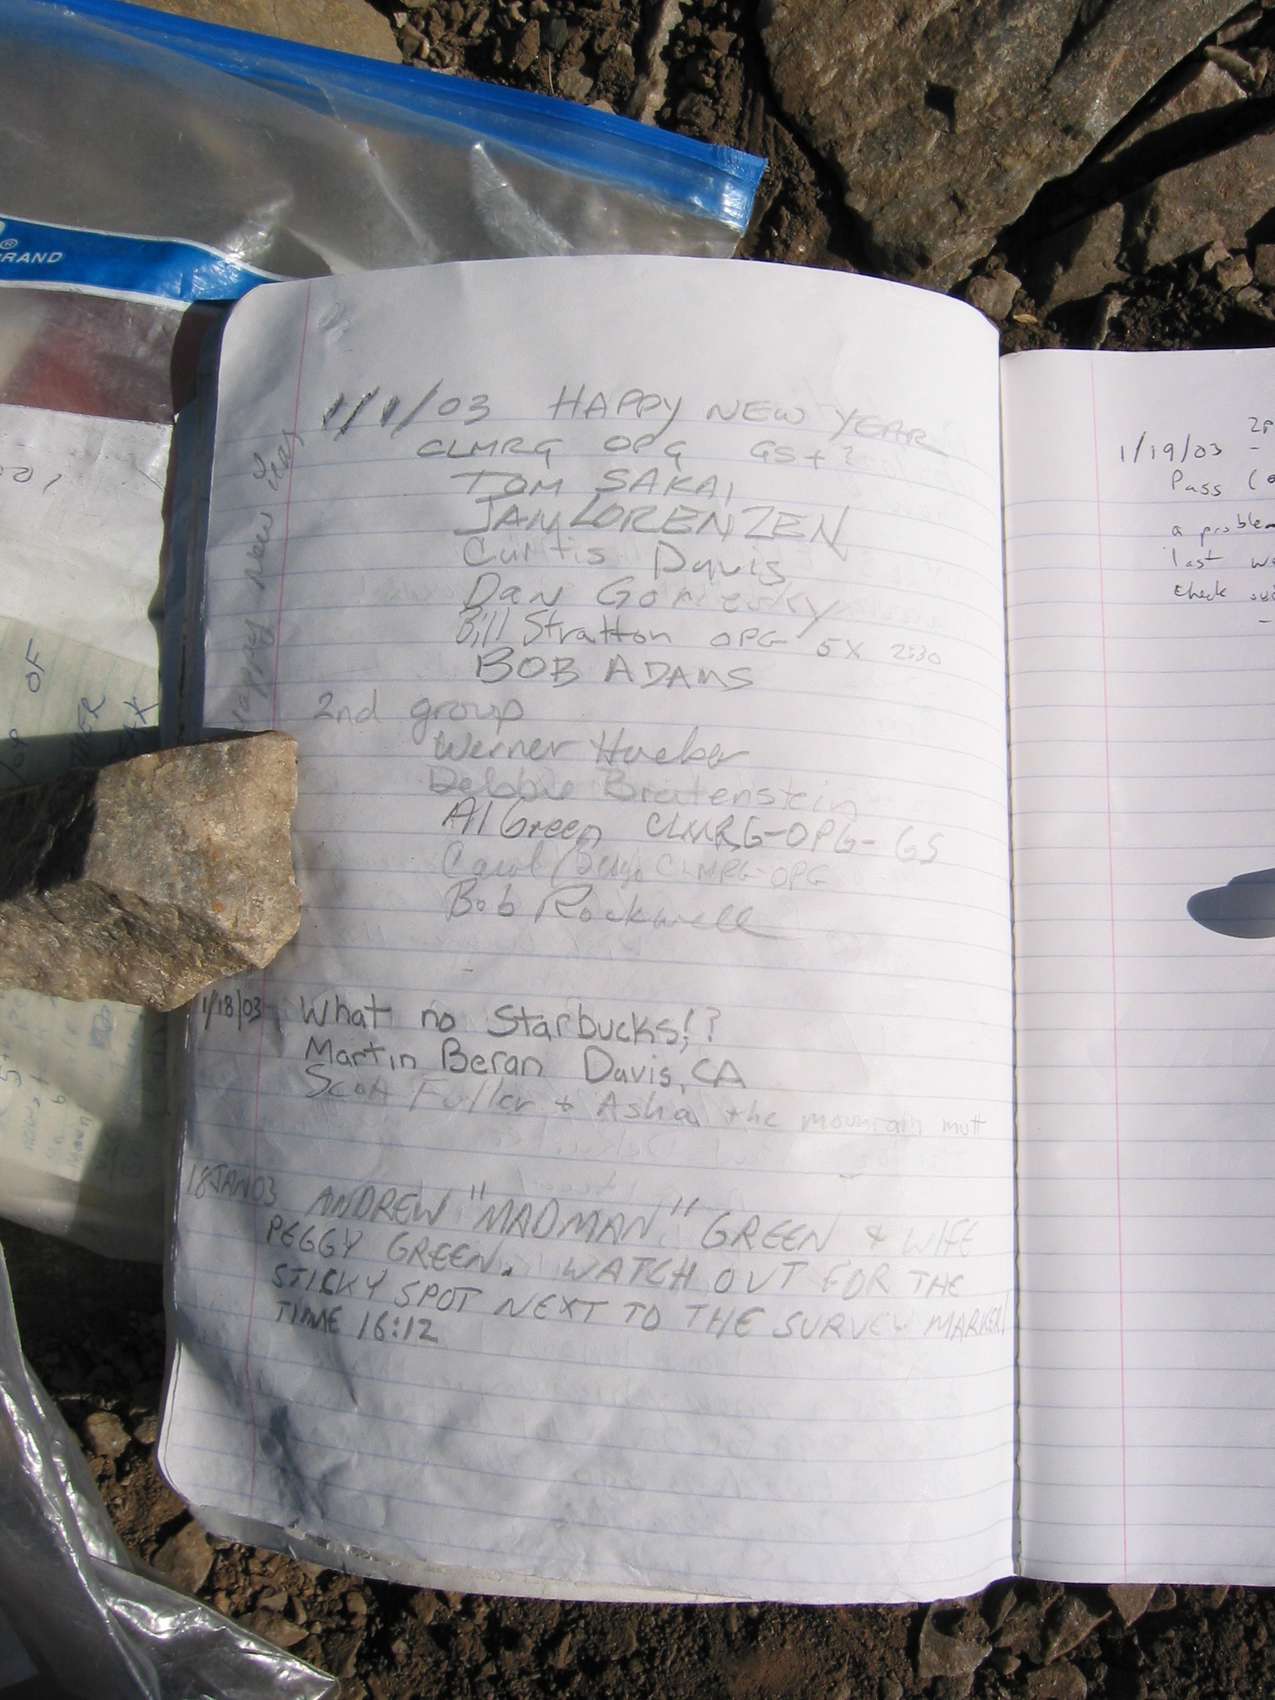 ® BRAND
1/1/03 HAPPY NEW YEAR
CLMRG OPG GS+?
TOM SAKAI
LORENZEN
Curtis Davis
Dan
Bill Stratton OPG 5X 2:30
BOB ADAMS
2nd group
Werner Hueber
Debbie Breitenstein
Al Green CLMRG-OPG-GS
Carol CLMRG-OPG
Bob Rockwell
Happy New Year
1/18/03 What no Starbucks!?
Martin Beran Davis, CA
Scott Fuller + Asha the mountain mutt
18JAN03 ANDREW "MADMAN" GREEN & WIFE
PEGGY GREEN. WATCH OUT FOR THE
STICKY SPOT NEXT TO THE SURVEY MARKER!
TIME 16:12
1/19/03 -
Pass (
a problem
last
check
OF